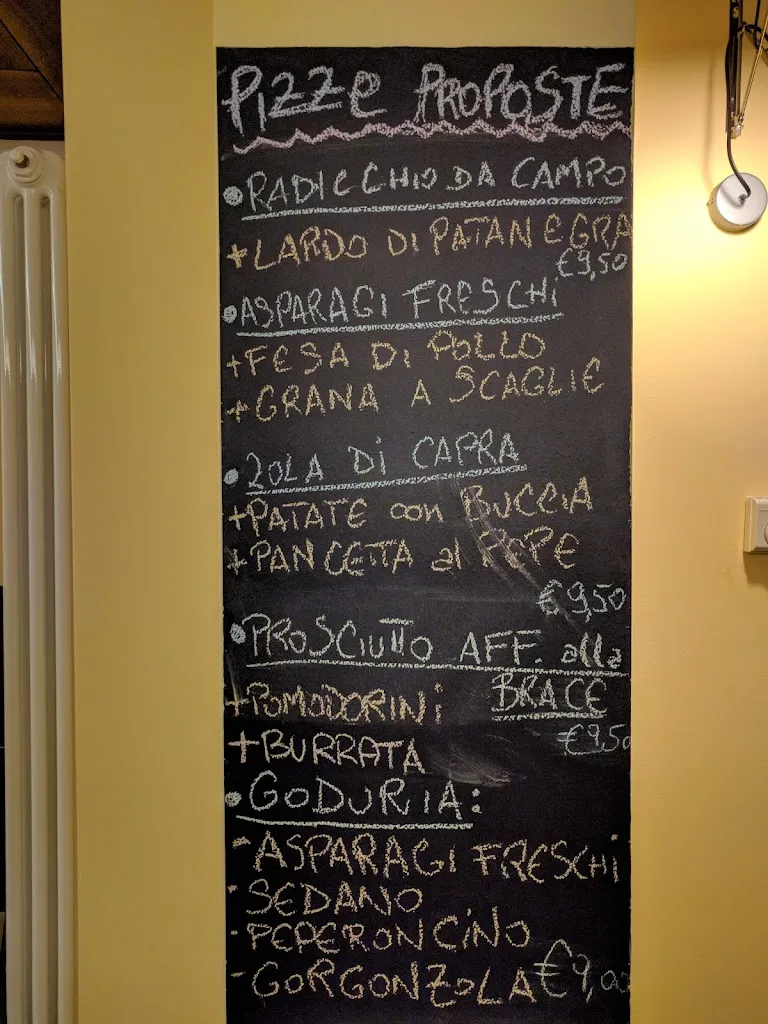 PIZZE PROPOSTE
• RADICCHIO DA CAMPO
+ LARDO DI PATANEGRA
€9,50
• ASPARAGI FRESCHI
+ FESA DI POLLO
+ GRANA A SCAGLIE
• ZOLA DI CAPRA
+ PATATE con BUCCIA
+ PANCETTA al PEPE
€9,50
• PROSCIUTTO AFF. alla
BRACE
+ POMODORINI
€9,50
+ BURRATA
• GODURIA:
- ASPARAGI FRESCHI
- SEDANO
- PEPERONCINO
- GORGONZOLA €9,00